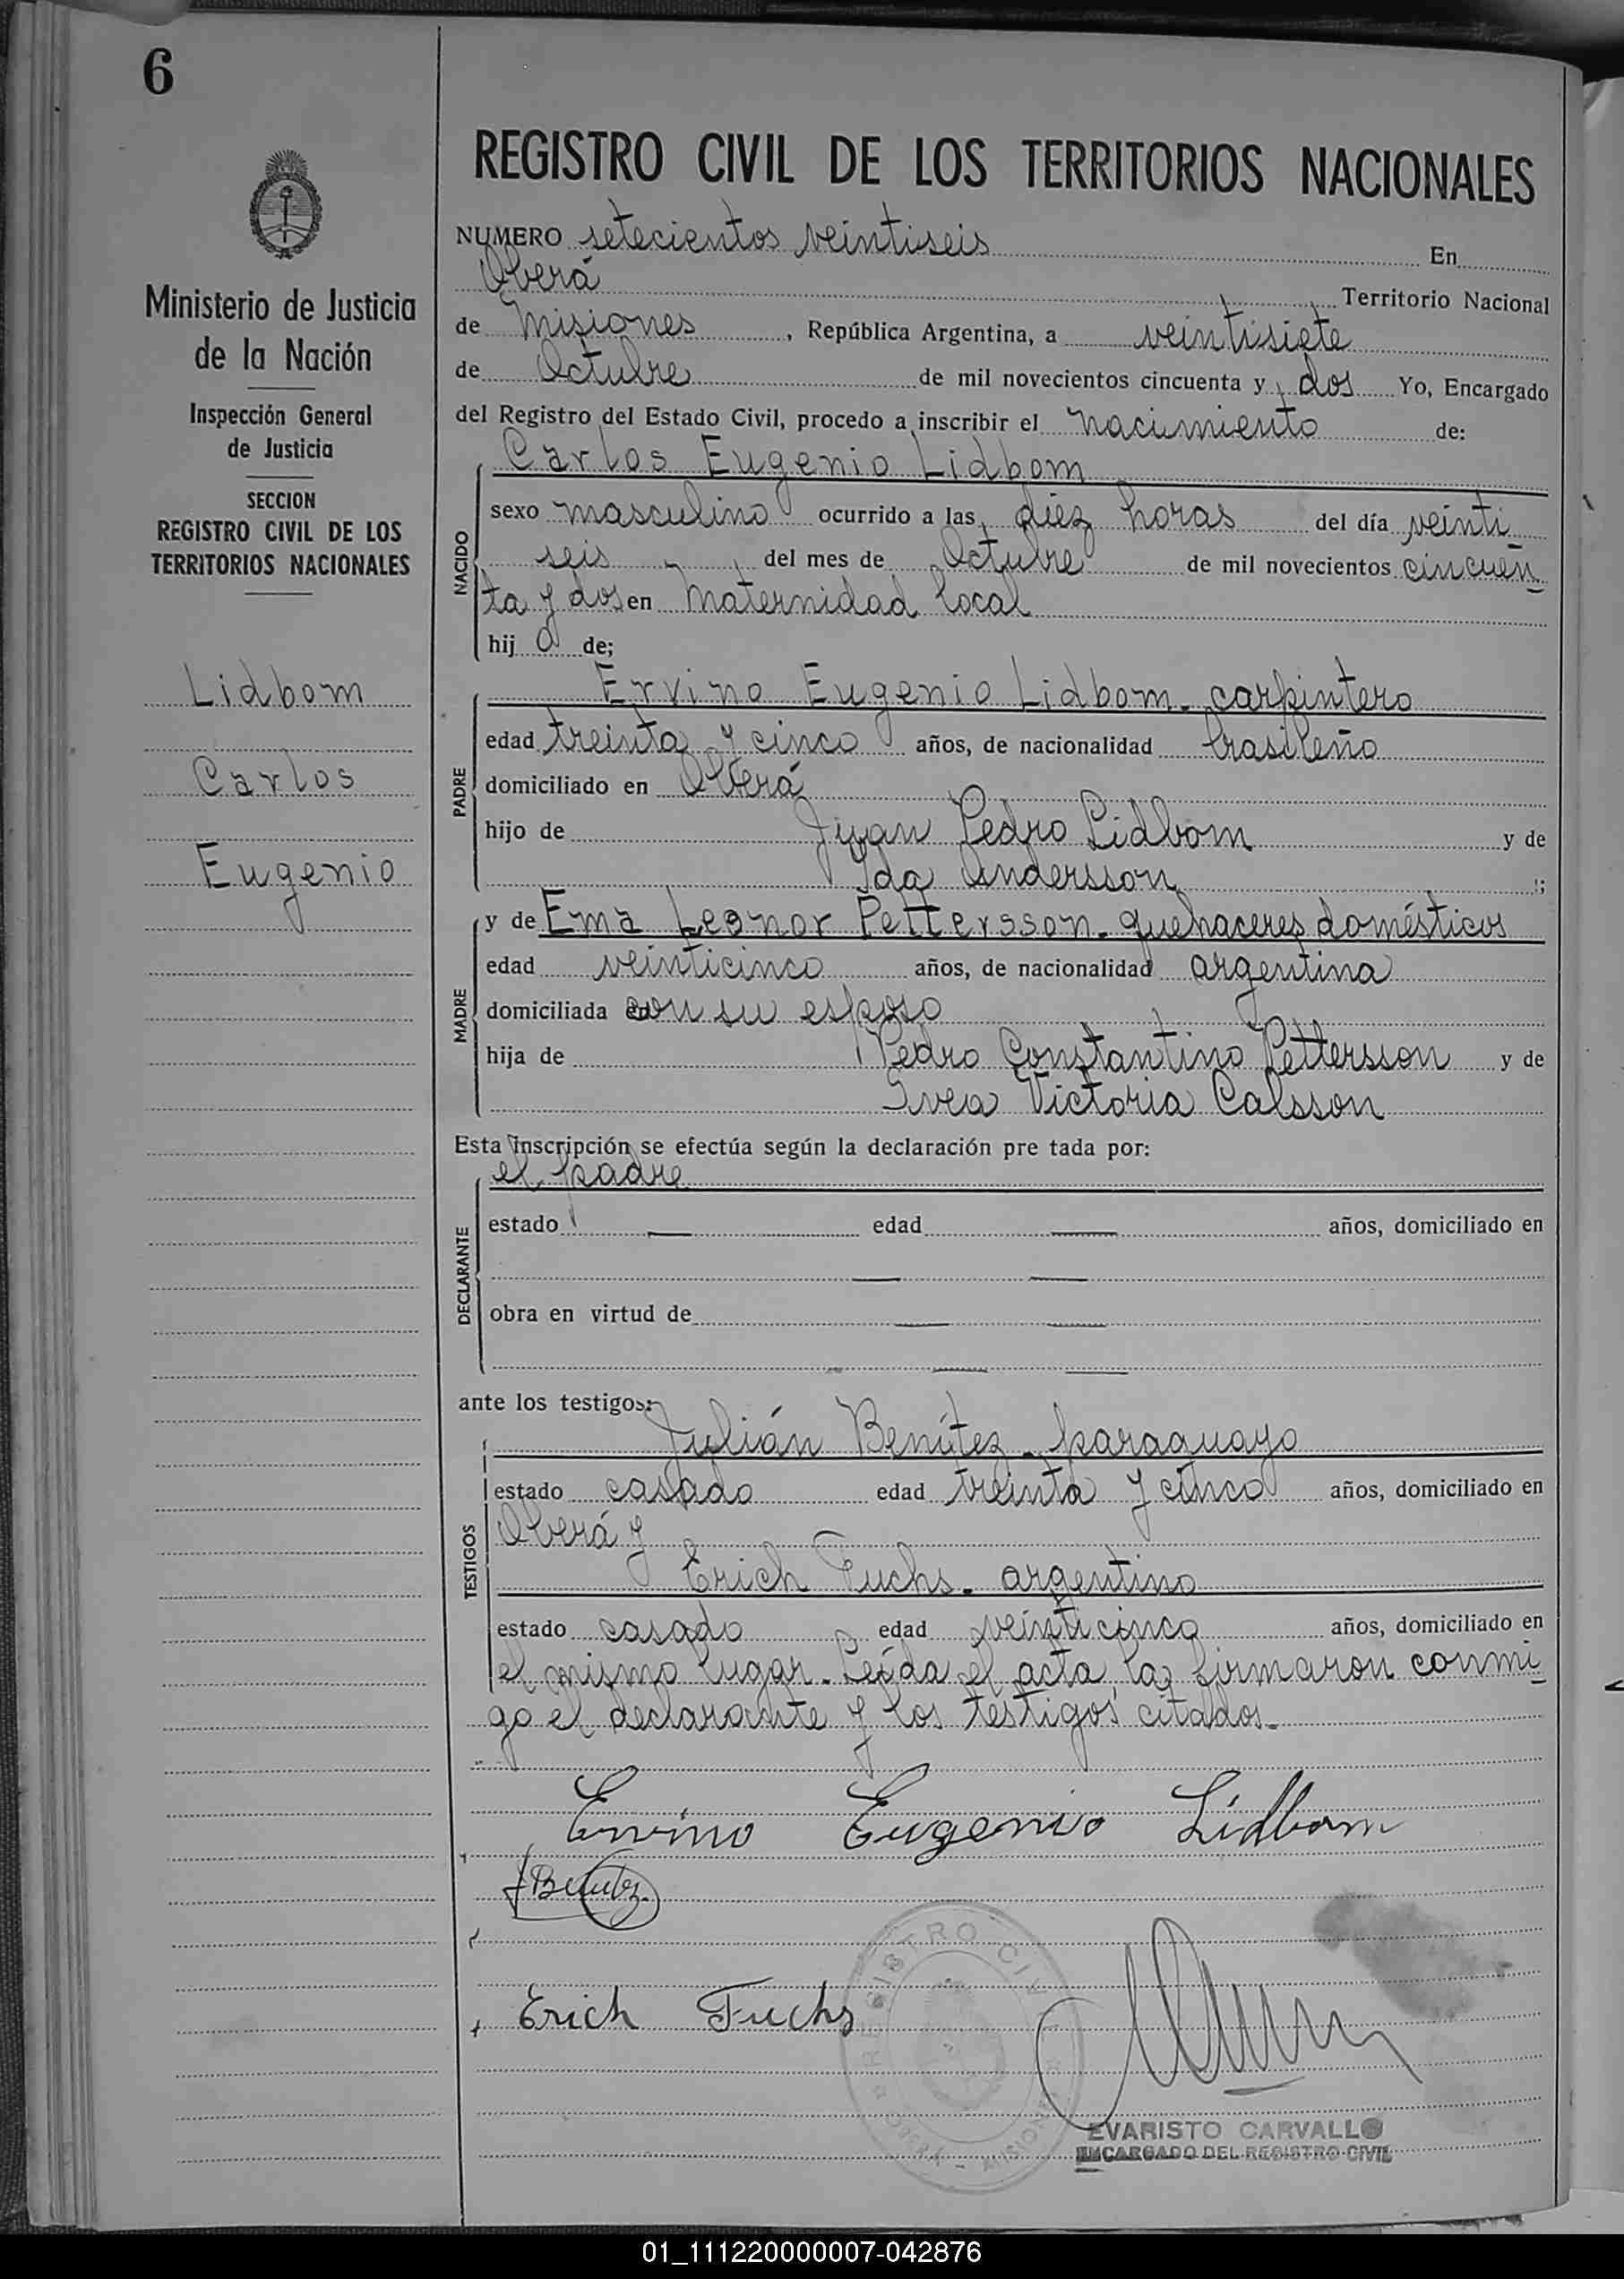 6
REGISTRO CIVIL DE LOS TERRITORIOS NACIONALES
Ministerio de Justicia
de la Nación
Inspección General
de Justicia
SECCION
REGISTRO CIVIL DE LOS
TERRITORIOS NACIONALES
Lidbom
Carlos
Eugenio
NUMERO setecientos veintiseis En
Oberá Territorio Nacional
de Misiones, República Argentina, a veintisiete
de Octubre de mil novecientos cincuenta y dos Yo, Encargado
del Registro del Estado Civil, procedo a inscribir el nacimiento de:
NACIDO
Carlos Eugenio Lidbom
sexo masculino ocurrido a las diez horas del día veinti
seis del mes de Octubre de mil novecientos cincuen
ta y dos en Maternidad local
hij o de;
PADRE
Ervino Eugenio Lidbom - carpintero
edad treinta y cinco años, de nacionalidad brasileño
domiciliado en Oberá
hijo de Juan Pedro Lidbom y de
Ida Andersson ;
MADRE
y de Ema Leonor Pettersson - quehaceres domésticos
edad veinticinco años, de nacionalidad argentina
domiciliada con su esposo
hija de Pedro Constantino Pettersson y de
Svea Victoria Calsson
Esta inscripción se efectúa según la declaración pre tada por:
DECLARANTE
el padre
estado — edad — años, domiciliado en
— —
obra en virtud de — —
— —
ante los testigos:
TESTIGOS
Julián Benítez - paraguayo
estado casado edad treinta y cinco años, domiciliado en
Oberá y
Erich Fuchs - argentino
estado casado edad veinticinco años, domiciliado en
el mismo lugar - Leída el acta, la firmaron conmi
go el declarante y los testigos citados.-
Ervino Eugenio Lidbom
JBenitez
Erich Fuchs
REGISTRO CIVIL
OBERA - MISIONES
EVARISTO CARVALLO
ENCARGADO DEL REGISTRO CIVIL
01_111220000007-042876